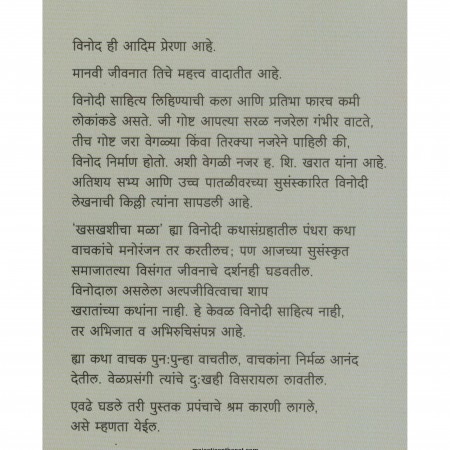 विनोद ही आदिम प्रेरणा आहे.
मानवी जीवनात तिचे महत्त्व वादातीत आहे.
विनोदी साहित्य लिहिण्याची कला आणि प्रतिभा फारच कमी
लोकांकडे असते. जी गोष्ट आपल्या सरळ नजरेला गंभीर वाटते,
तीच गोष्ट जरा वेगळ्या किंवा तिरक्या नजरेने पाहिली की,
विनोद निर्माण होतो. अशी वेगळी नजर ह. शि. खरात यांना आहे.
अतिशय सभ्य आणि उच्च पातळीवरच्या सुसंस्कारित विनोदी
लेखनाची किल्ली त्यांना सापडली आहे.
‘खसखशीचा मळा’ ह्या विनोदी कथासंग्रहातील पंधरा कथा
वाचकांचे मनोरंजन तर करतीलच; पण आजच्या सुसंस्कृत
समाजातल्या विसंगत जीवनाचे दर्शनही घडवतील.
विनोदाला असलेला अल्पजीवित्वाचा शाप
खरातांच्या कथांना नाही. हे केवळ विनोदी साहित्य नाही,
तर अभिजात व अभिरुचिसंपन्न आहे.
ह्या कथा वाचक पुन:पुन्हा वाचतील, वाचकांना निर्मळ आनंद
देतील. वेळप्रसंगी त्यांचे दु:खही विसरायला लावतील.
एवढे घडले तरी पुस्तक प्रपंचाचे श्रम कारणी लागले,
असे म्हणता येईल.